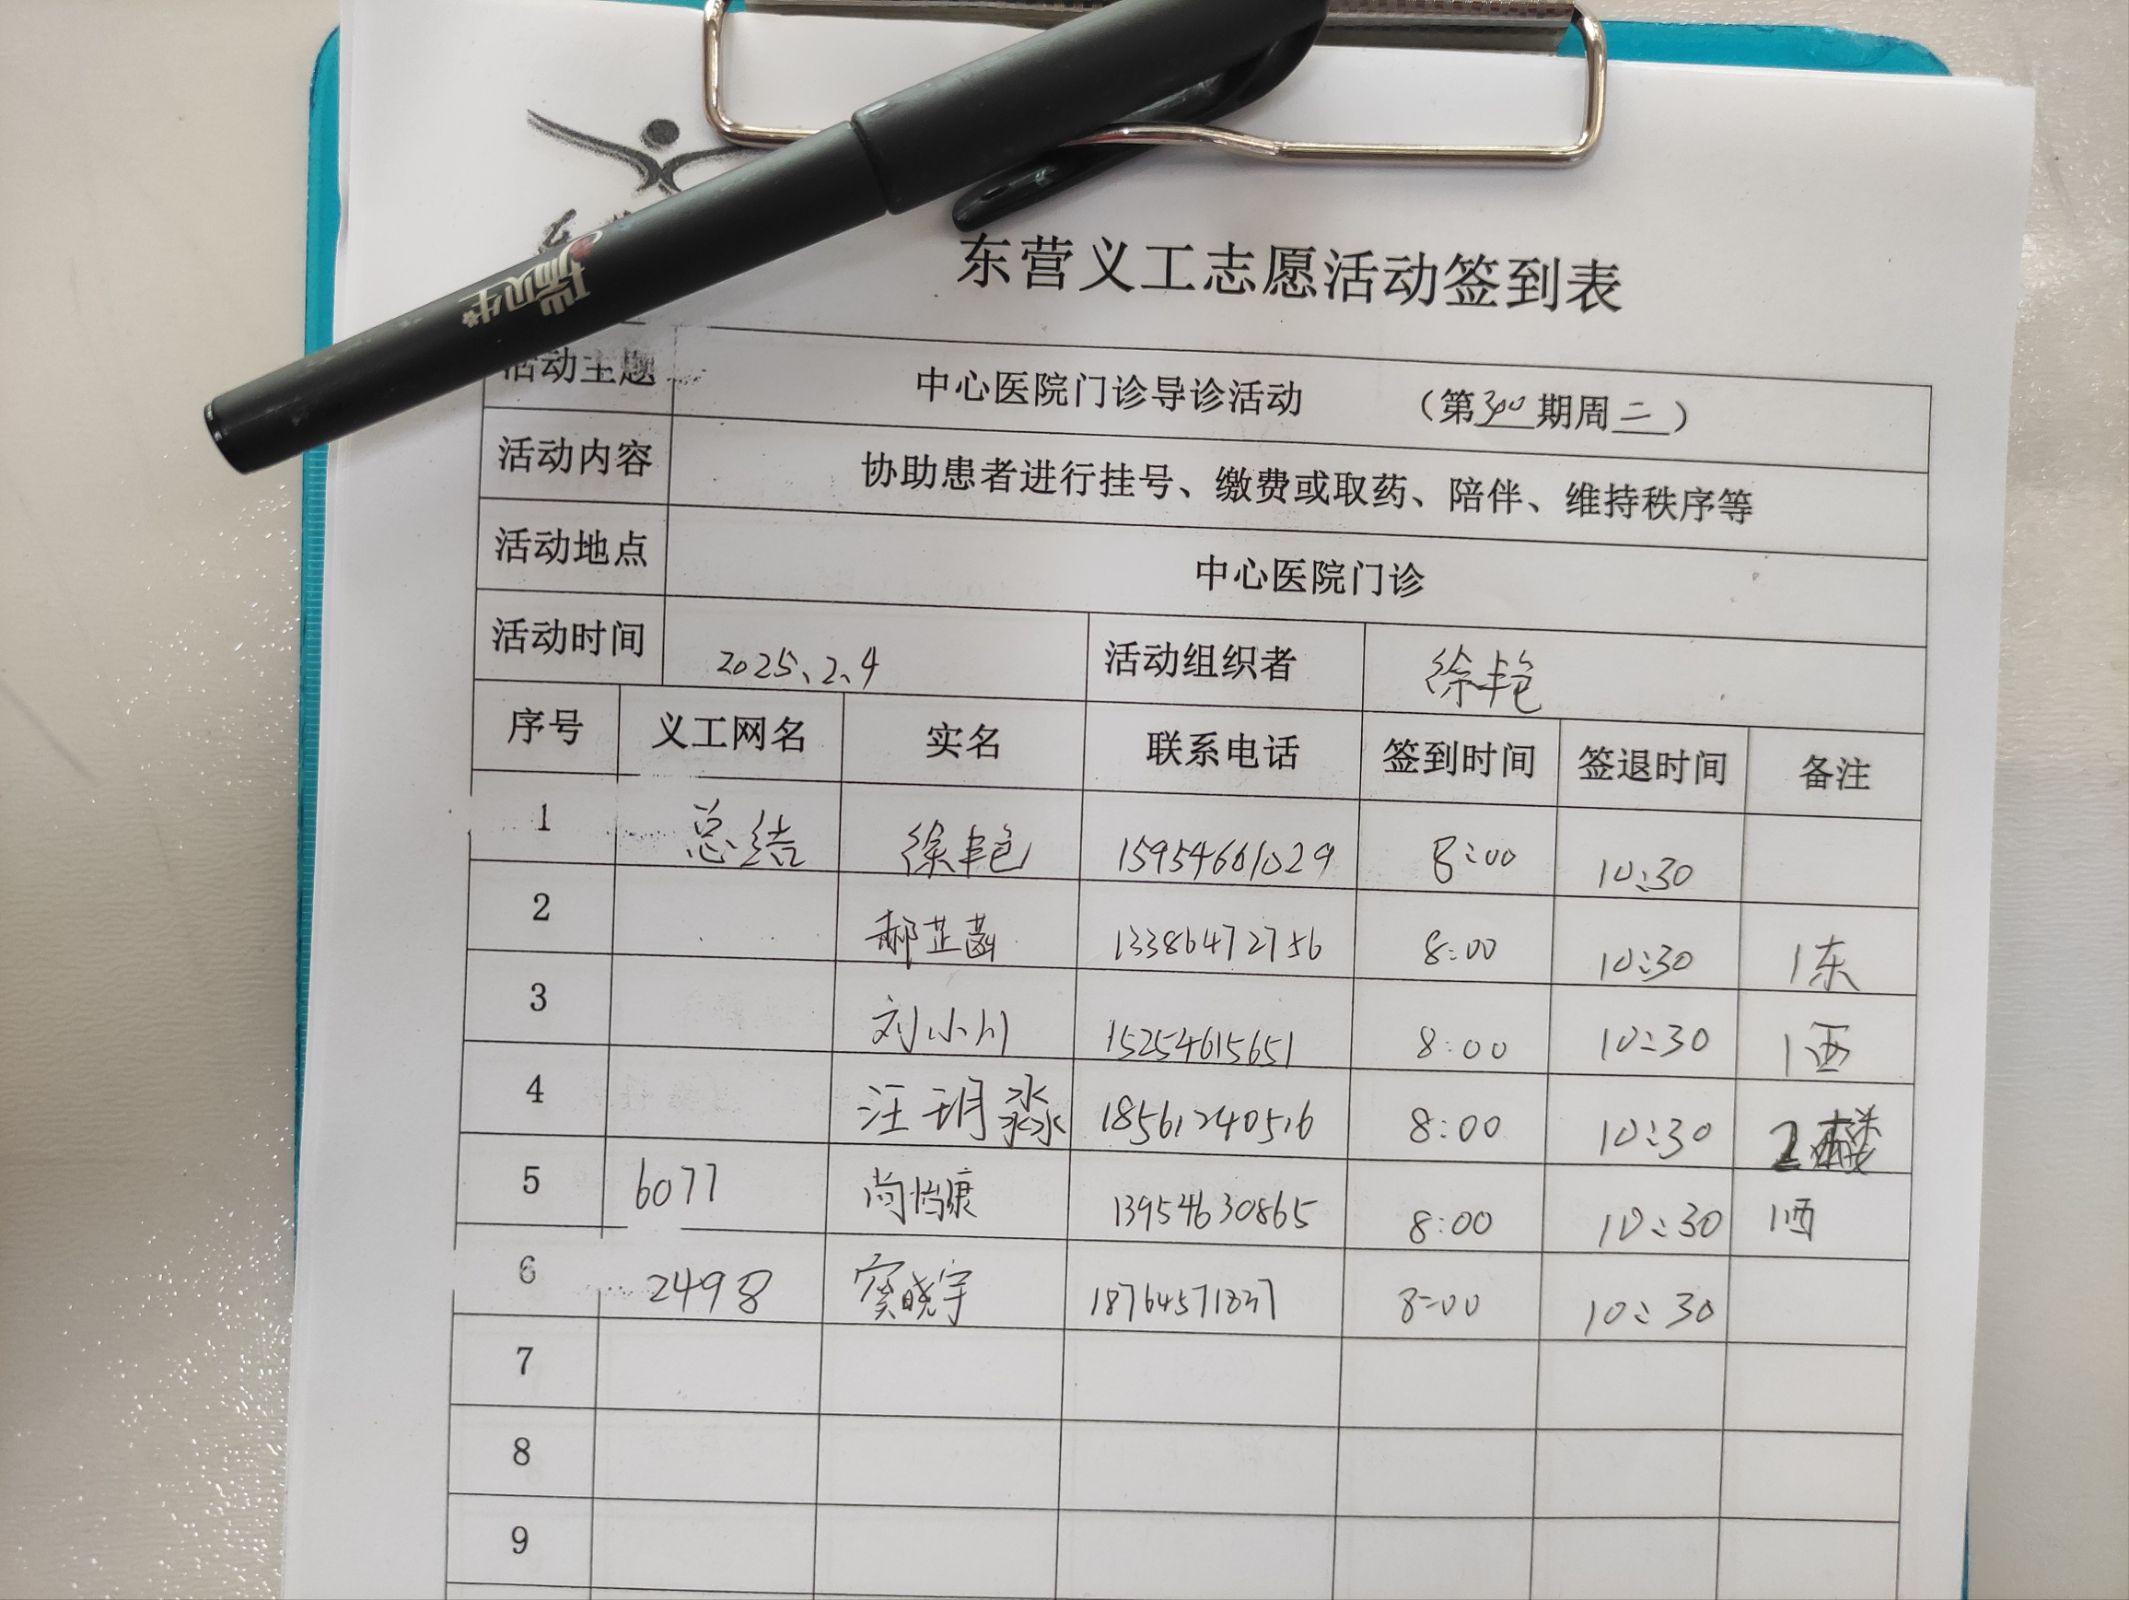 瑞贝生
东营义工志愿活动签到表
活动主题 中心医院门诊导诊活动 （第340期周二）
活动内容 协助患者进行挂号、缴费或取药、陪伴、维持秩序等
活动地点 中心医院门诊
活动时间 2025、2、4 活动组织者 徐艳
序号 义工网名 实名 联系电话 签到时间 签退时间 备注
1 总结 徐艳 15954661029 8:00 10:30
2 郝芷菡 13386472756 8:00 10:30 1东
3 刘小川 15254615651 8:00 10:30 1西
4 汪玥淼 18561240516 8:00 10:30 2楼
5 6077 尚怡康 13954630865 8:00 10:30 1西
6 2498 窦晓宇 18764571837 8:00 10:30
7
8
9